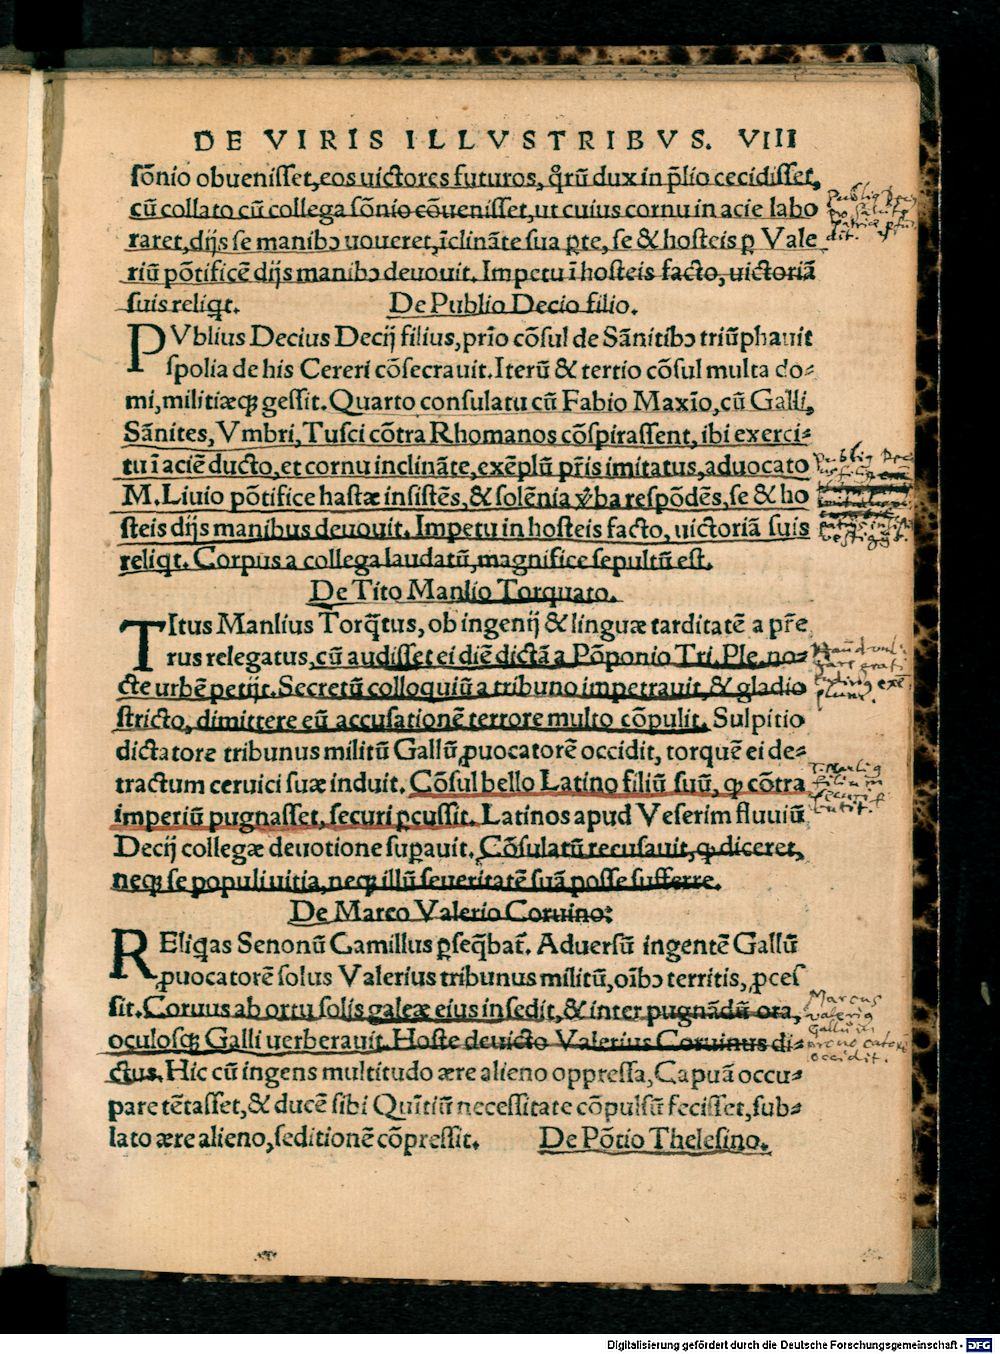 DE VIRIS ILLVSTRIBVS. VIII
ſōnio obueniſſet, eos uictores futuros, q̄rū dux in p̄lio cecidiſſet,
cū collato cū collega ſōnio cōueniſſet, ut cuius cornu in acie labo
raret, dijs ſe manibꝰ uoueret, īclināte ſua ꝑte, ſe & hoſteis ꝑ Vale
riū pōtificē dijs manibꝰ deuouit. Impetu ī hoſteis facto, uictoriā
ſuis reliq̄t. De Publio Decio filio.
PVblius Decius Decij filius, prīo cōſul de Sānitibꝰ triūphauit
ſpolia de his Cereri cōſecrauit. Iterū & tertio cōſul multa do-
mi, militiæq; geſſit. Quarto conſulatu cū Fabio Maxīo, cū Galli,
Sānites, Vmbri, Tuſci cōtra Rhomanos cōſpiraſſent, ibi exerci-
tu ī aciē ducto, et cornu inclināte, exēplū pr̄is imitatus, aduocato
M. Liuio pōtifice haſtæ inſiſtēs, & ſolēnia ꝟba reſpōdēs, ſe & ho
ſteis dijs manibus deuouit. Impetu in hoſteis facto, uictoriā ſuis
reliq̄t. Corpus a collega laudatū, magnifice ſepultū eſt.
De Tito Manlio Torquato.
TItus Manlius Torq̄tus, ob ingenij & linguæ tarditatē a pr̄e
rus relegatus, cū audiſſet ei diē dictā a Pōponio Tri. Ple. no-
cte urbē petijt. Secretū colloquiū a tribuno impetrauit, & gladio
ſtricto, dimittere eū accuſationē terrore multo cōpulit. Sulpitio
dictatore tribunus militū Gallū ꝓuocatorē occidit, torquē ei de-
tractum ceruici ſuæ induit. Cōſul bello Latino filiū ſuū, ꝙ cōtra
imperiū pugnaſſet, ſecuri ꝑcuſſit. Latinos apud Veſerim fluuiū
Decij collegæ deuotione ſuꝑauit. Cōſulatū recuſauit, ꝙ diceret,
neq; ſe populi uitia, neq; illū ſeueritatē ſuā poſſe ſufferre.
De Marco Valerio Coruino:
REliq̄as Senonū Camillus ꝑſeq̄bat̄. Aduerſū ingentē Gallū
ꝓuocatorē ſolus Valerius tribunus militū, oībꝰ territis, ꝓceſ
ſit. Coruus ab ortu ſolis galeæ eius inſedit, & inter pugnādū ora,
oculoſq; Galli uerberauit. Hoſte deuicto Valerius Coruinus di-
ctus. Hic cū ingens multitudo ære alieno oppreſſa, Capuā occu-
pare tētaſſet, & ducē ſibi Quītiū neceſſitate cōpulſū feciſſet, ſub-
lato ære alieno, ſeditionē cōpreſſit. De Pōtio Theleſino.
Marcus
valeriꝰ
Gallū
occidit.
Digitalisierung gefördert durch die Deutsche Forschungsgemeinschaft - DFG